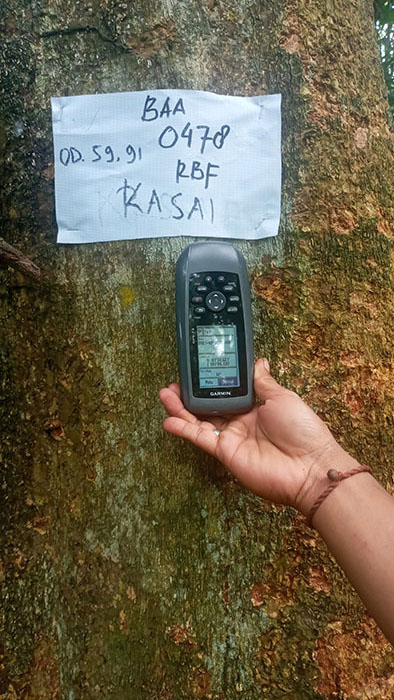 BAA
0478
OD. 59. 91
RBF
KASAI
GARMIN